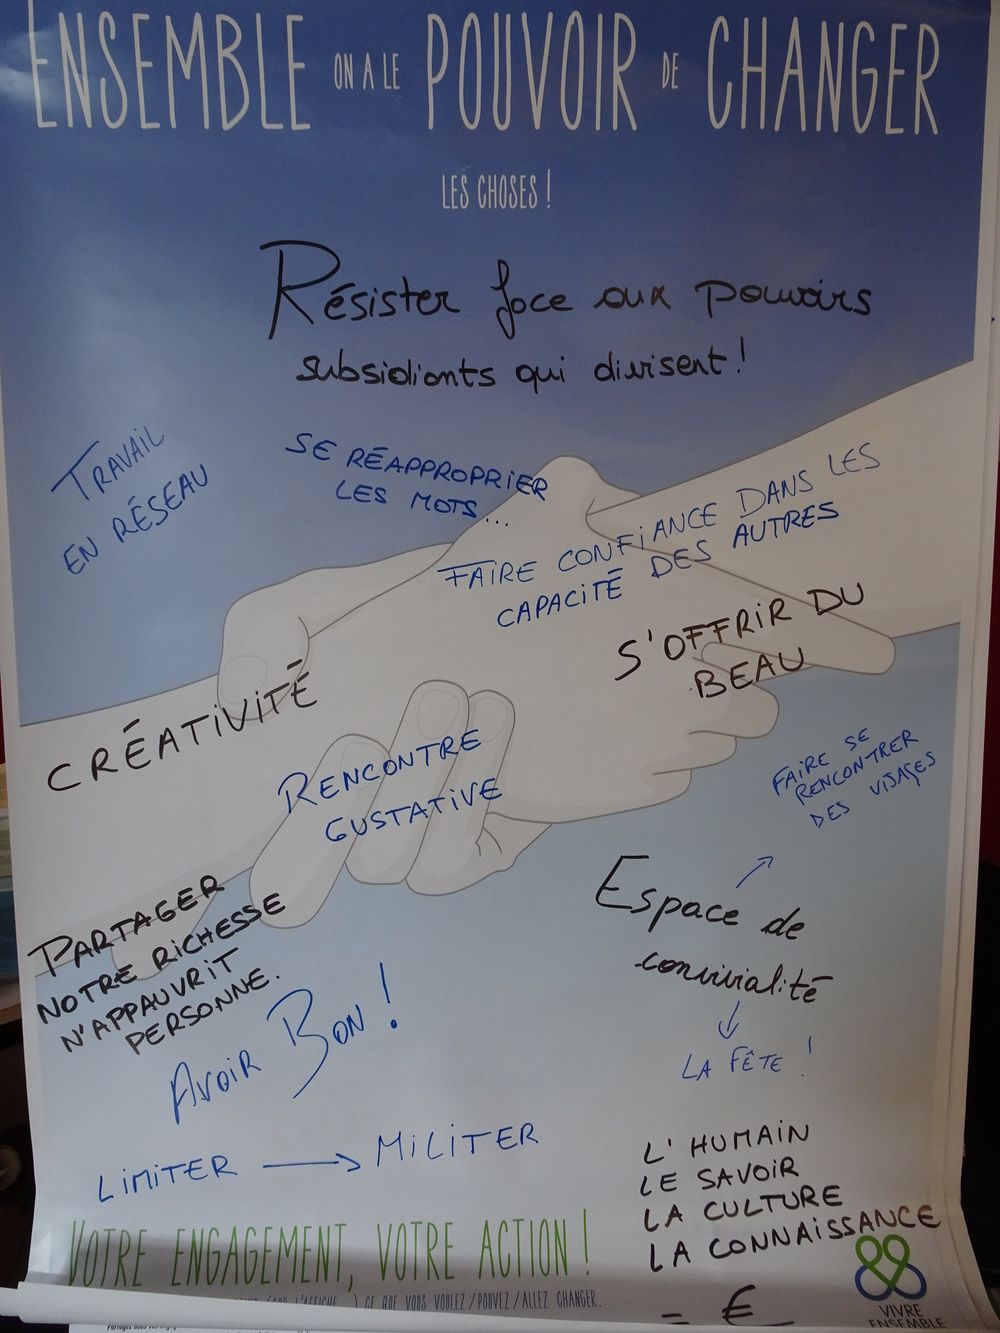 ENSEMBLE ON A LE POUVOIR DE CHANGER
LES CHOSES !
Résister face aux pouvoirs
subsidiants qui divisent !
TRAVAIL
EN RÉSEAU
SE RÉAPPROPRIER
LES MOTS...
FAIRE CONFIANCE DANS LES
CAPACITÉ DES AUTRES
S'OFFRIR DU
BEAU
CRÉATIVITÉ
RENCONTRE
GUSTATIVE
FAIRE SE
RENCONTRER
DES VISAGES
Espace de
convivialité
LA FÊTE !
PARTAGER
NOTRE RICHESSE
N'APPAUVRIT
PERSONNE.
AVOIR BON !
LIMITER → MILITER
L'HUMAIN
LE SAVOIR
LA CULTURE
LA CONNAISSANCE
= €
VOTRE ENGAGEMENT, VOTRE ACTION !
CE QUE VOUS VOULEZ/POUVEZ/ALLEZ CHANGER.
VIVRE
ENSEMBLE